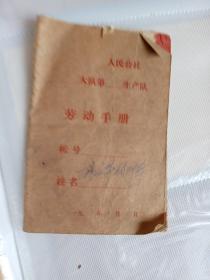 人民公社
大队第 生产队
劳动手册
账号
姓名
一九 年 月 日